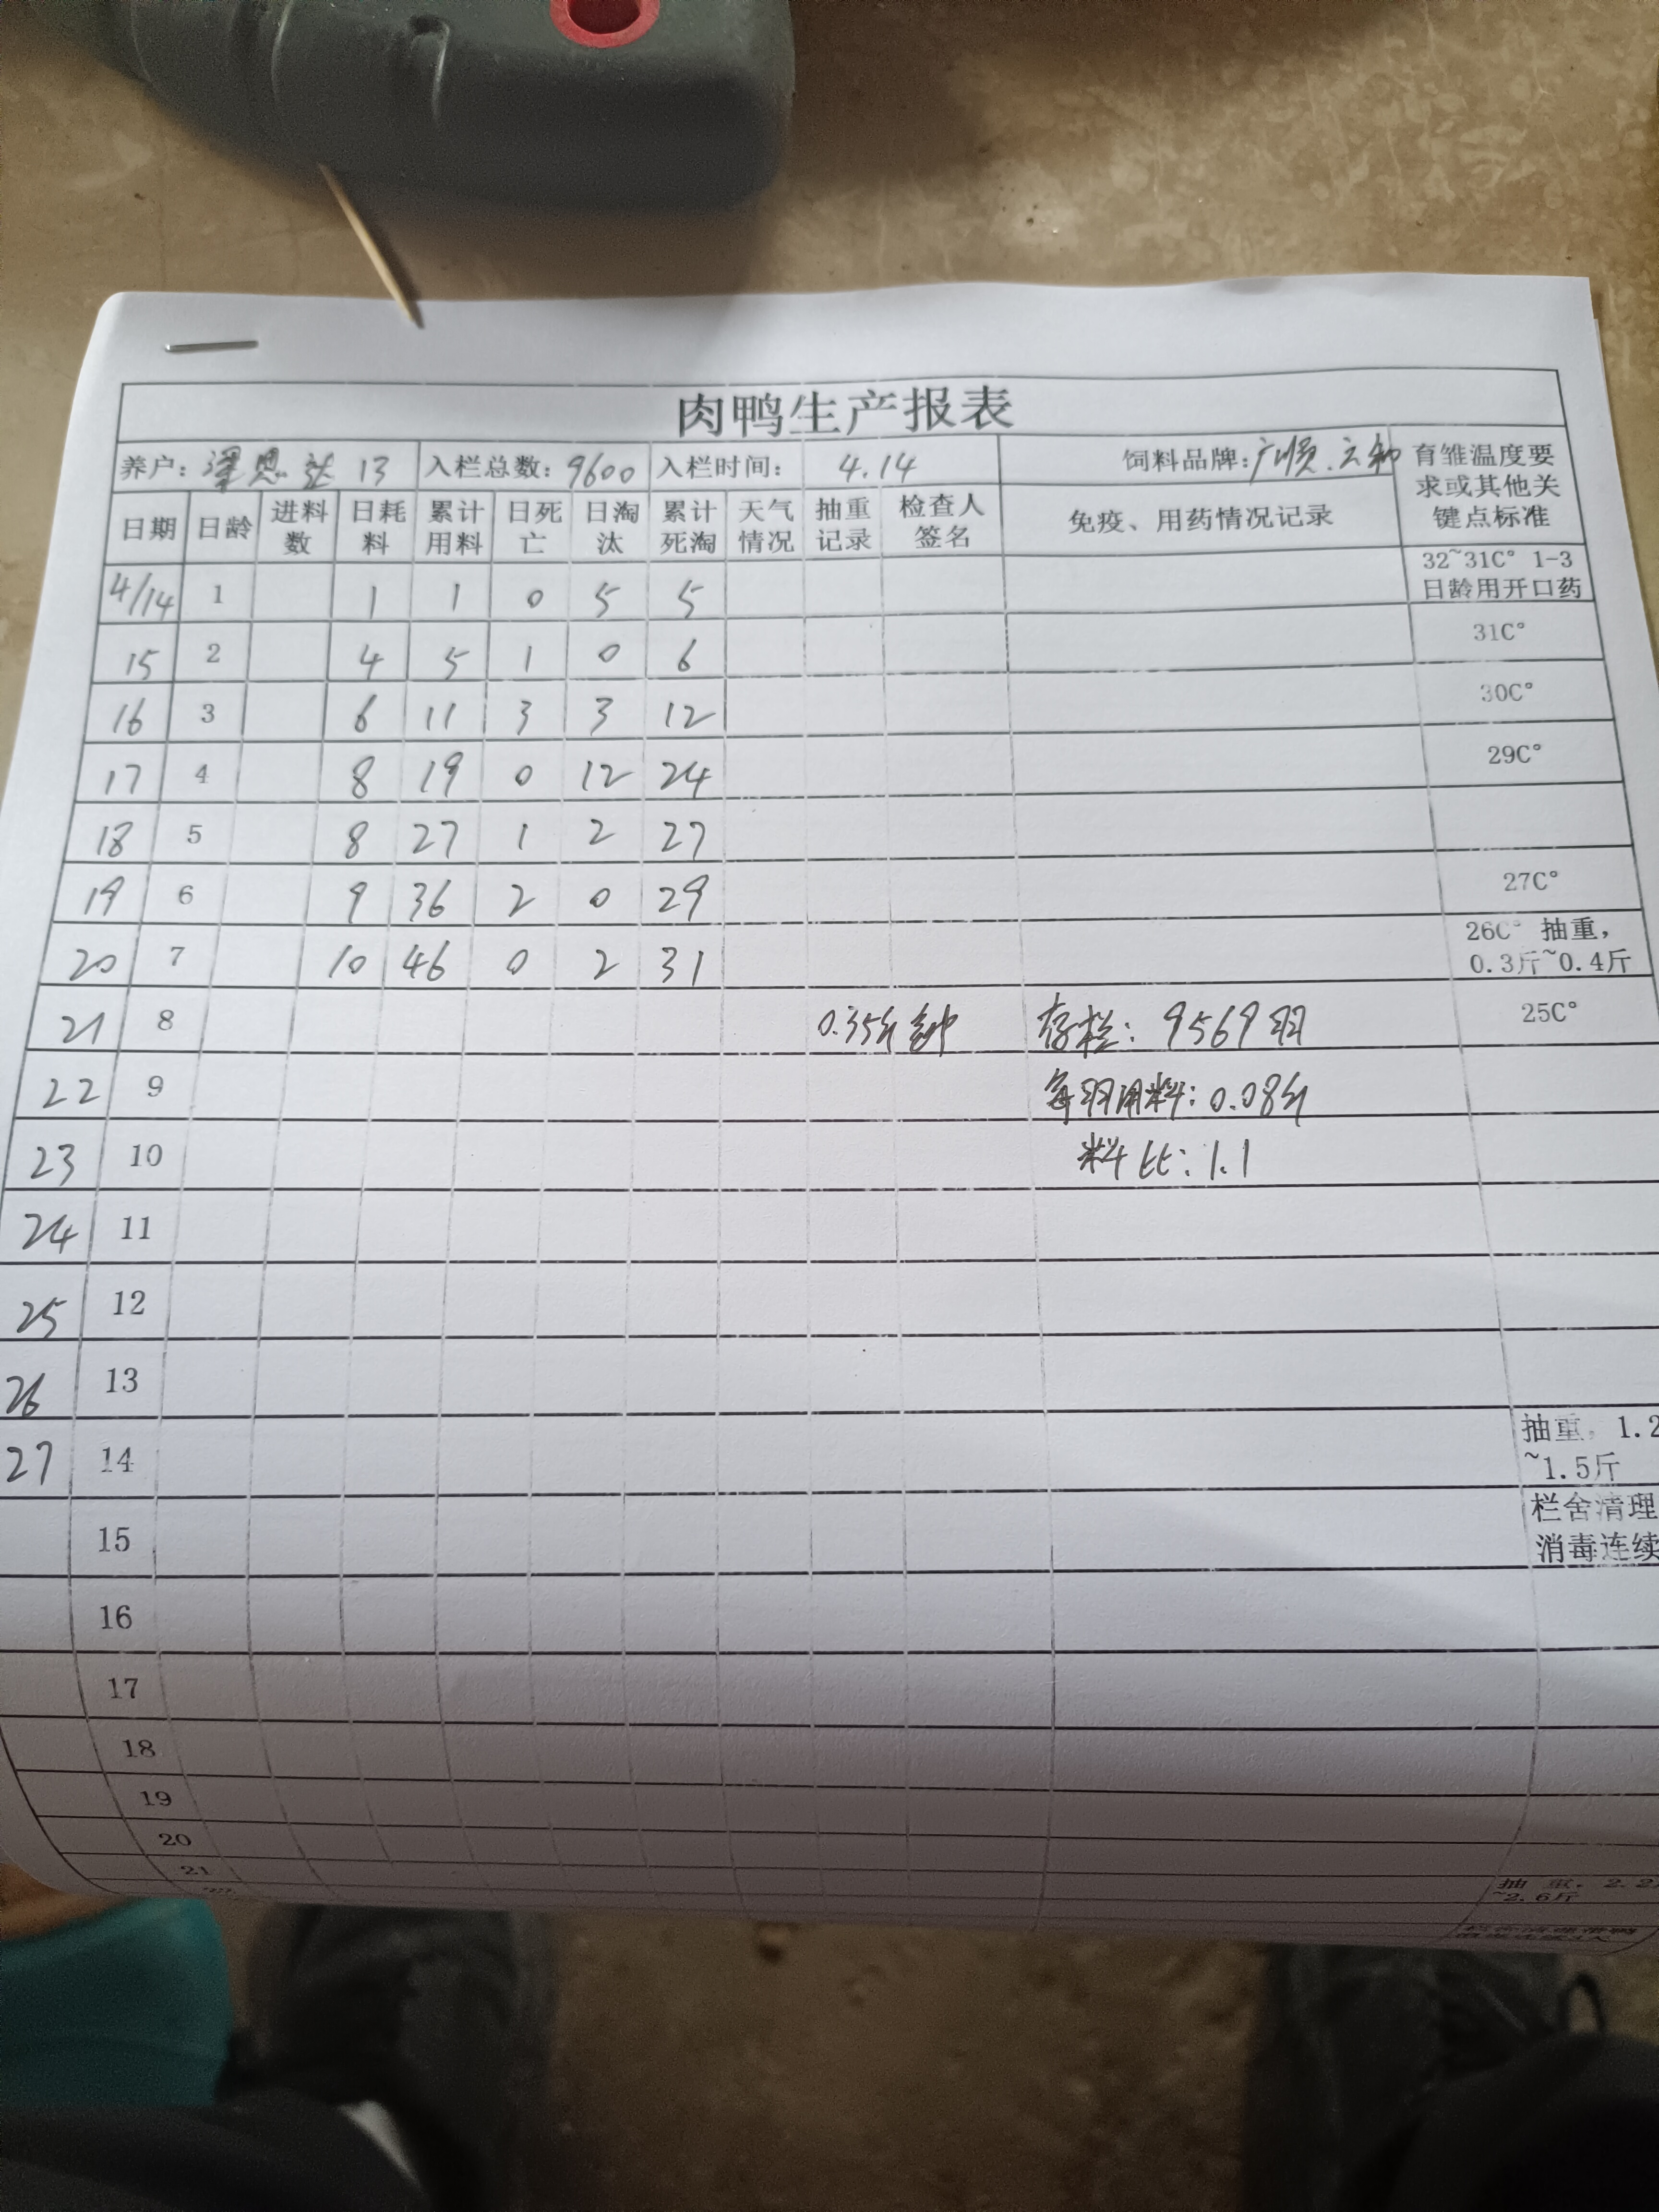 肉鸭生产报表
养户: 覃恩达 13 入栏总数: 9600 入栏时间: 4.14 饲料品牌: 广顺.立和 育雏温度要求或其他关键点标准
日期 日龄 进料数 日耗料 累计用料 日死亡 日淘汰 累计死淘 天气情况 抽重记录 检查人签名 免疫、用药情况记录
4/14 1 1 1 0 5 5 32~31C° 1-3日龄用开口药
15 2 4 5 1 0 6 31C°
16 3 6 11 3 3 12 30C°
17 4 8 19 0 12 24 29C°
18 5 8 27 1 2 27
19 6 9 36 2 0 29 27C°
20 7 10 46 0 2 31 26C° 抽重, 0.3斤~0.4斤
21 8 0.35斤 存栏: 9569羽 25C°
22 9 每羽用料: 0.08斤
23 10 料比: 1.1
24 11
25 12
26 13
27 14 抽重, 1.2~1.5斤
15 栏舍清理消毒连续
16
17
18
19
20
21
抽重, 2.2
~2.6斤